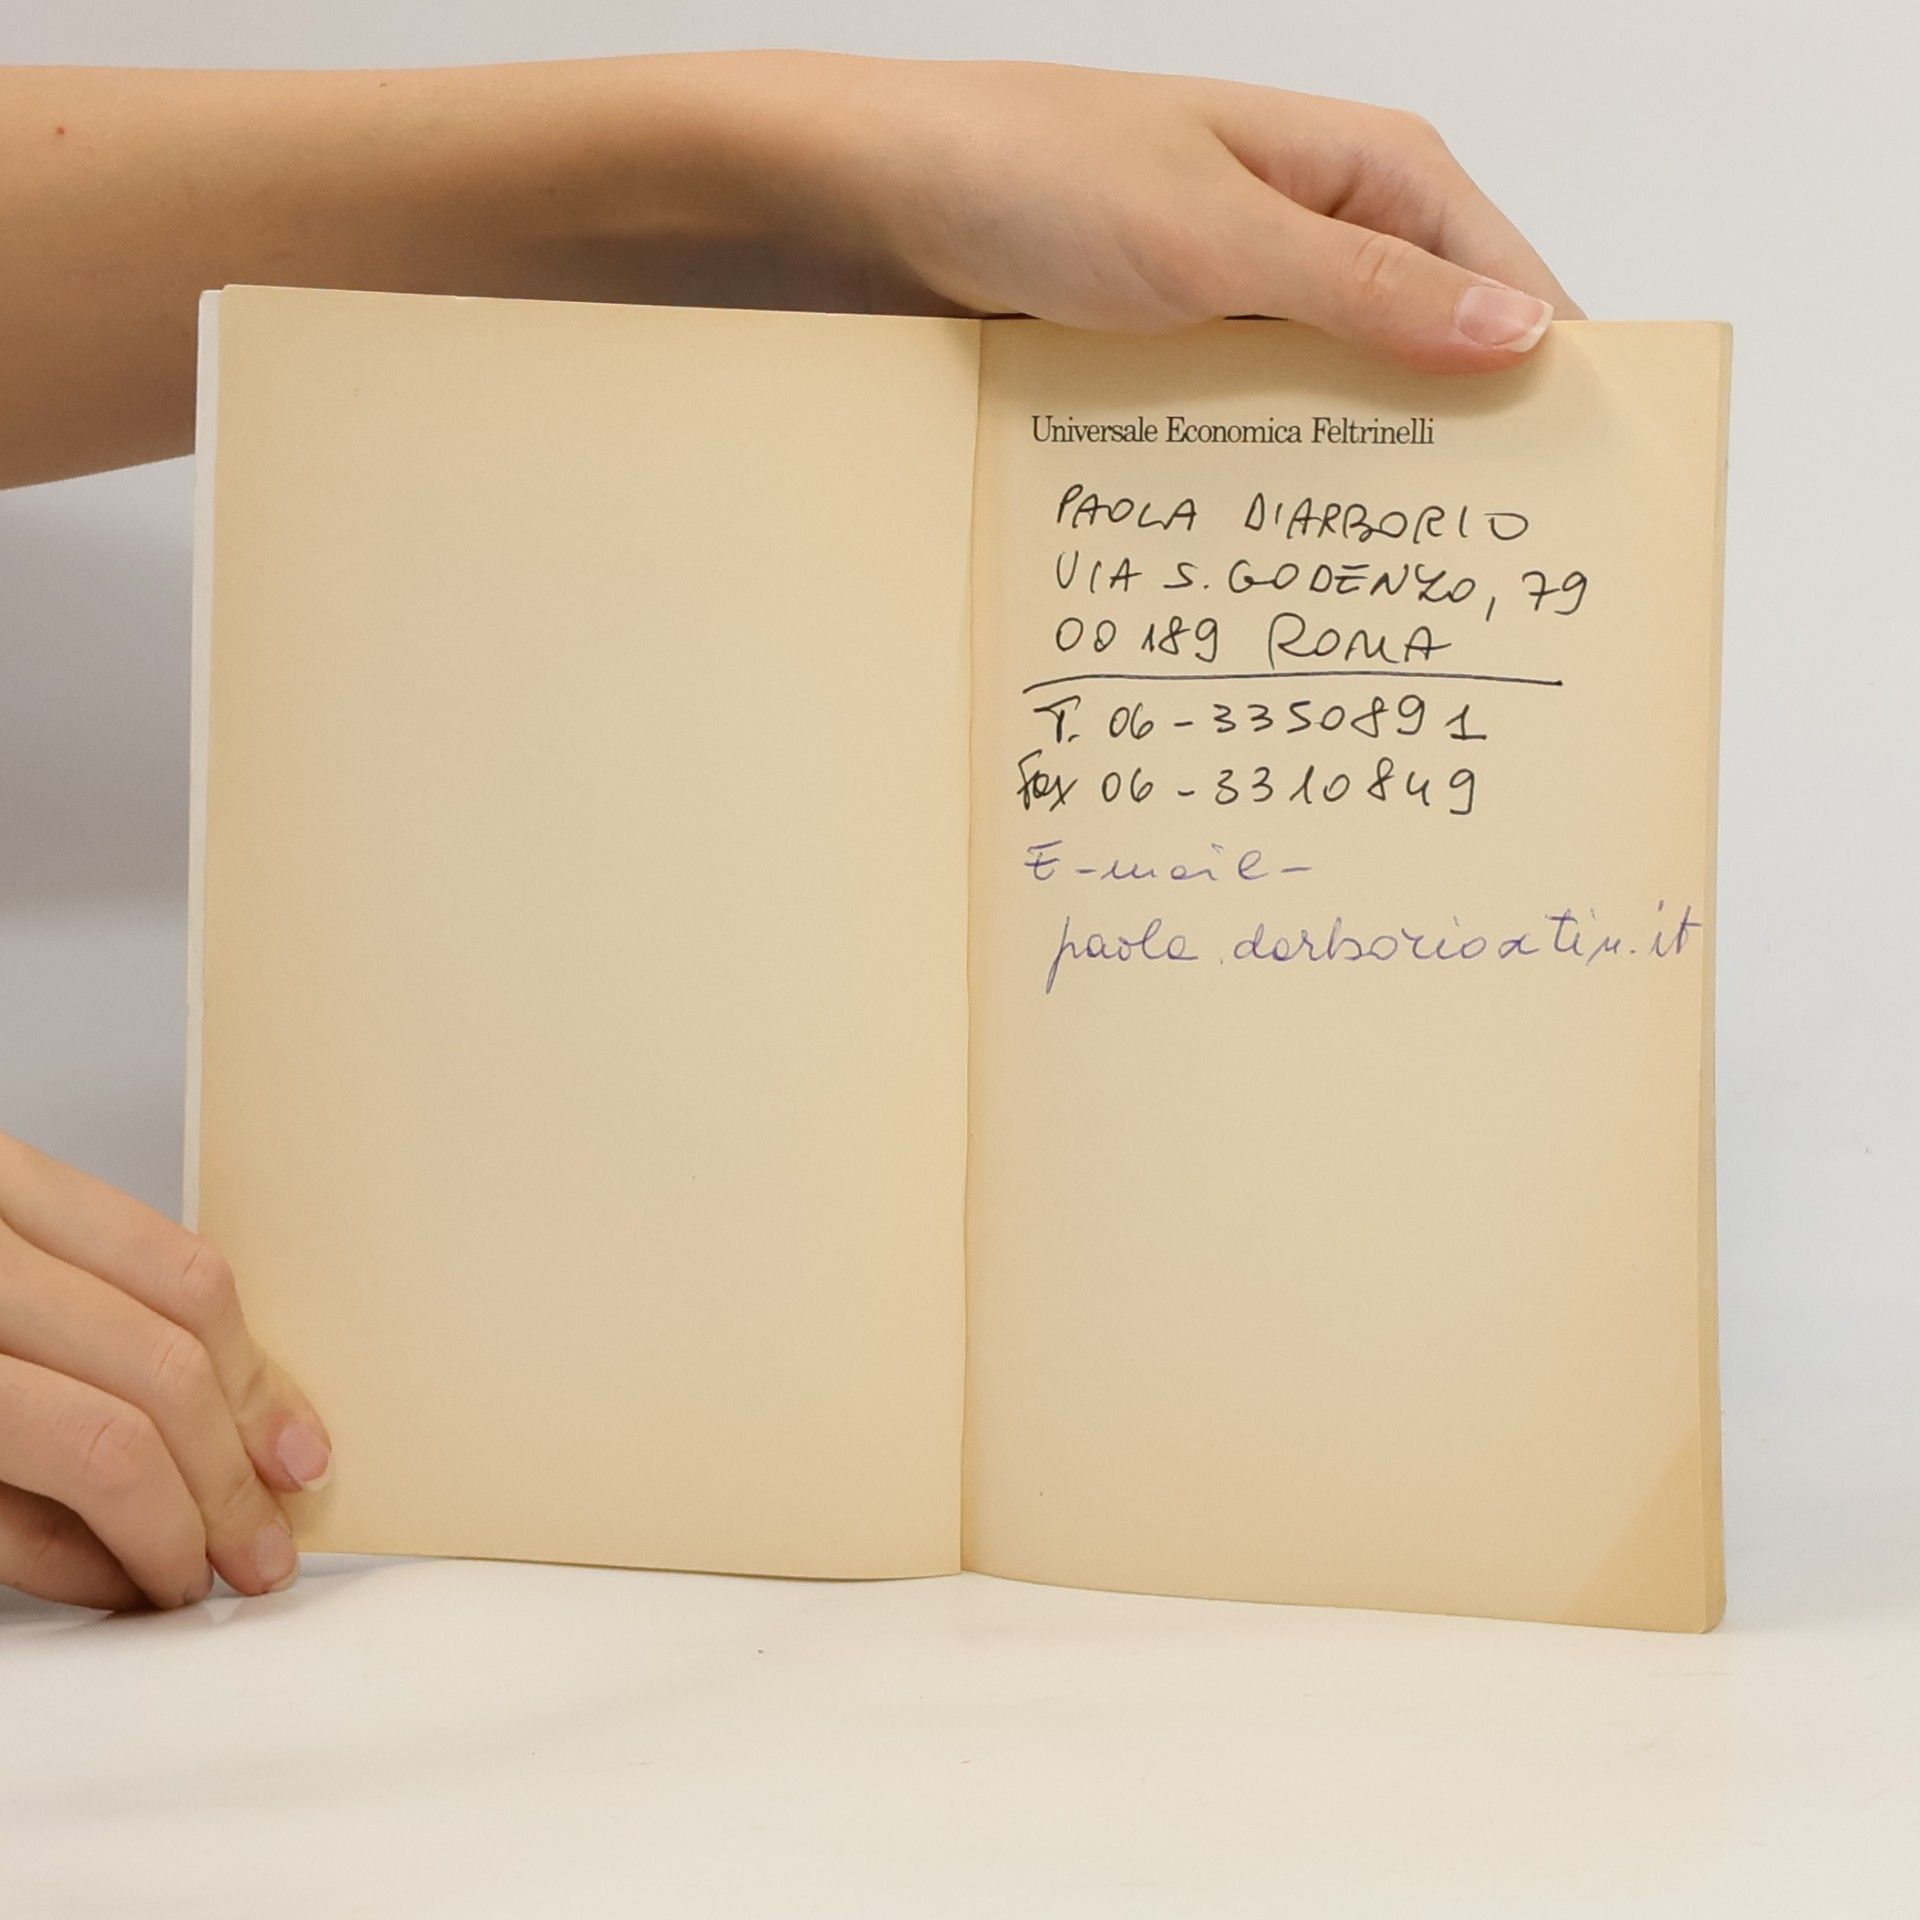 Universale Economica Feltrinelli
PAOLA D'ARBORIO
VIA S. GODENZO, 79
00189 ROMA
T. 06-3350891
Fax 06-3310849
E-mail-
paola.darborio@tin.it